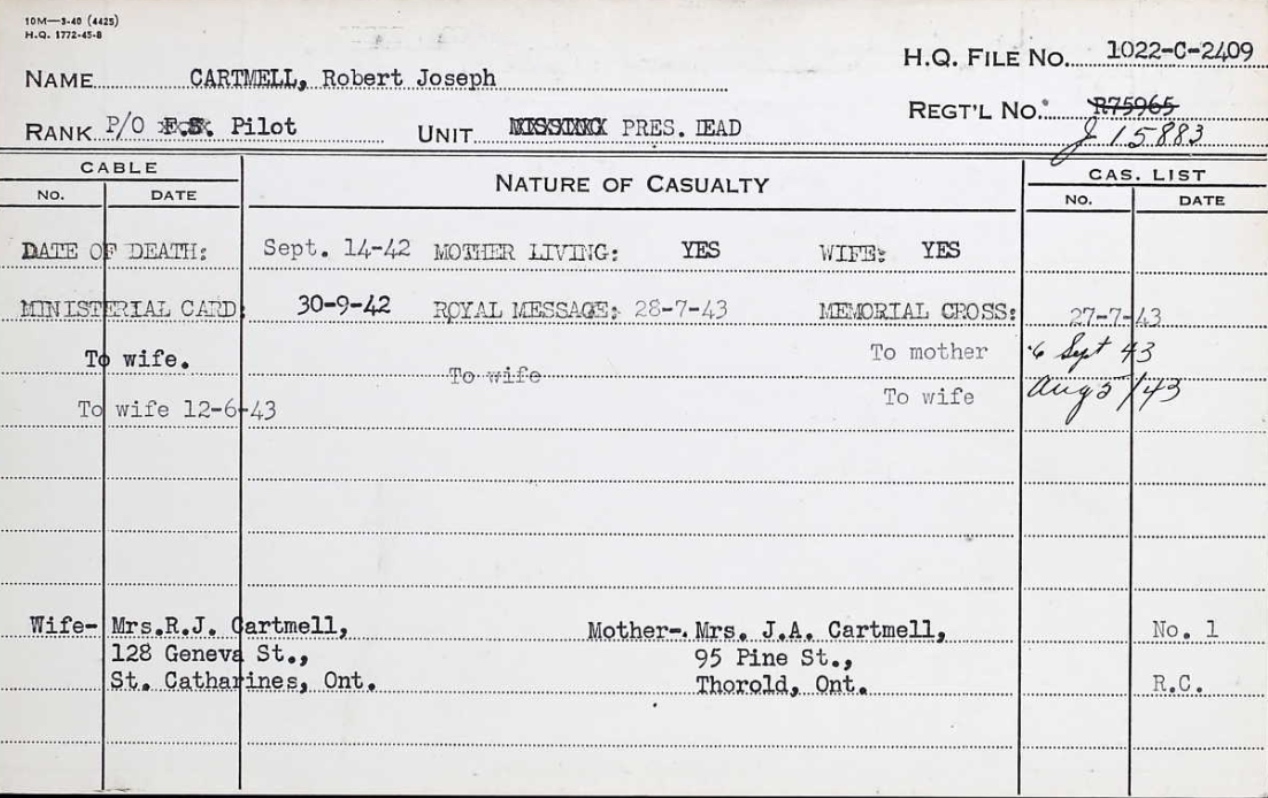 10M—3-40 (4425)
H.Q. 1772-45-8
H.Q. FILE NO. 1022-C-2409
NAME CARTMELL, Robert Joseph
REGT'L NO. R75965
J15883
RANK P/O F.S. Pilot UNIT MISSING PRES. DEAD
CABLE NATURE OF CASUALTY CAS. LIST
NO. DATE NO. DATE
DATE OF DEATH: Sept. 14-42 MOTHER LIVING: YES WIFE: YES
MINISTERIAL CARD: 30-9-42 ROYAL MESSAGE: 28-7-43 MEMORIAL CROSS: 27-7-43
To wife. To wife To mother 6 Sept 43
To wife 12-6-43 To wife Aug 5/43
Wife- Mrs.R.J. Cartmell, Mother-. Mrs. J.A. Cartmell, No. 1
128 Geneva St., 95 Pine St.,
St. Catharines, Ont. Thorold, Ont. R.C.